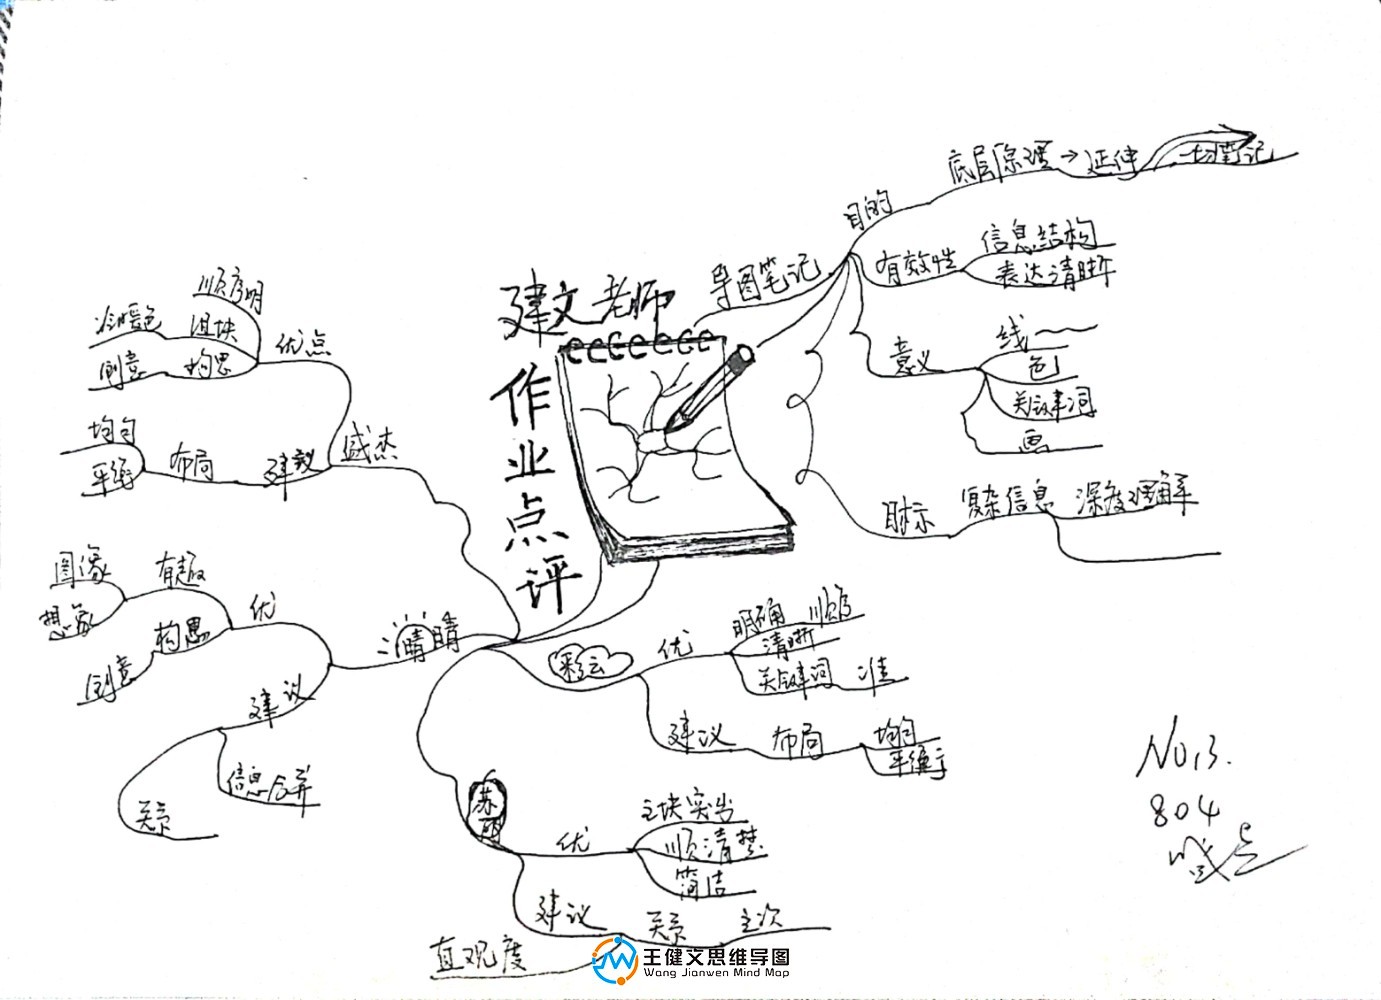 建文老师
作业点评
导图笔记
目的
底层原理→延伸
一切笔记
有效性
信息结构
表达清晰
意义
线
色
关键词
画
目标
复杂信息
深度理解
彩云
优
明确
顺序
清晰
关键词
准
建议
布局
均匀
平衡
苏
优
主块突出
顺清楚
简洁
建议
关系
主次
直观度
晴晴
优
有趣
图像
想象
构思
创意
建议
信息合并
关系
盛杰
优点
顺序明
组块
冷暖色
构思
创意
建议
布局
均匀
平衡
NO.13.
804
王健文思维导图
Wang Jianwen Mind Map